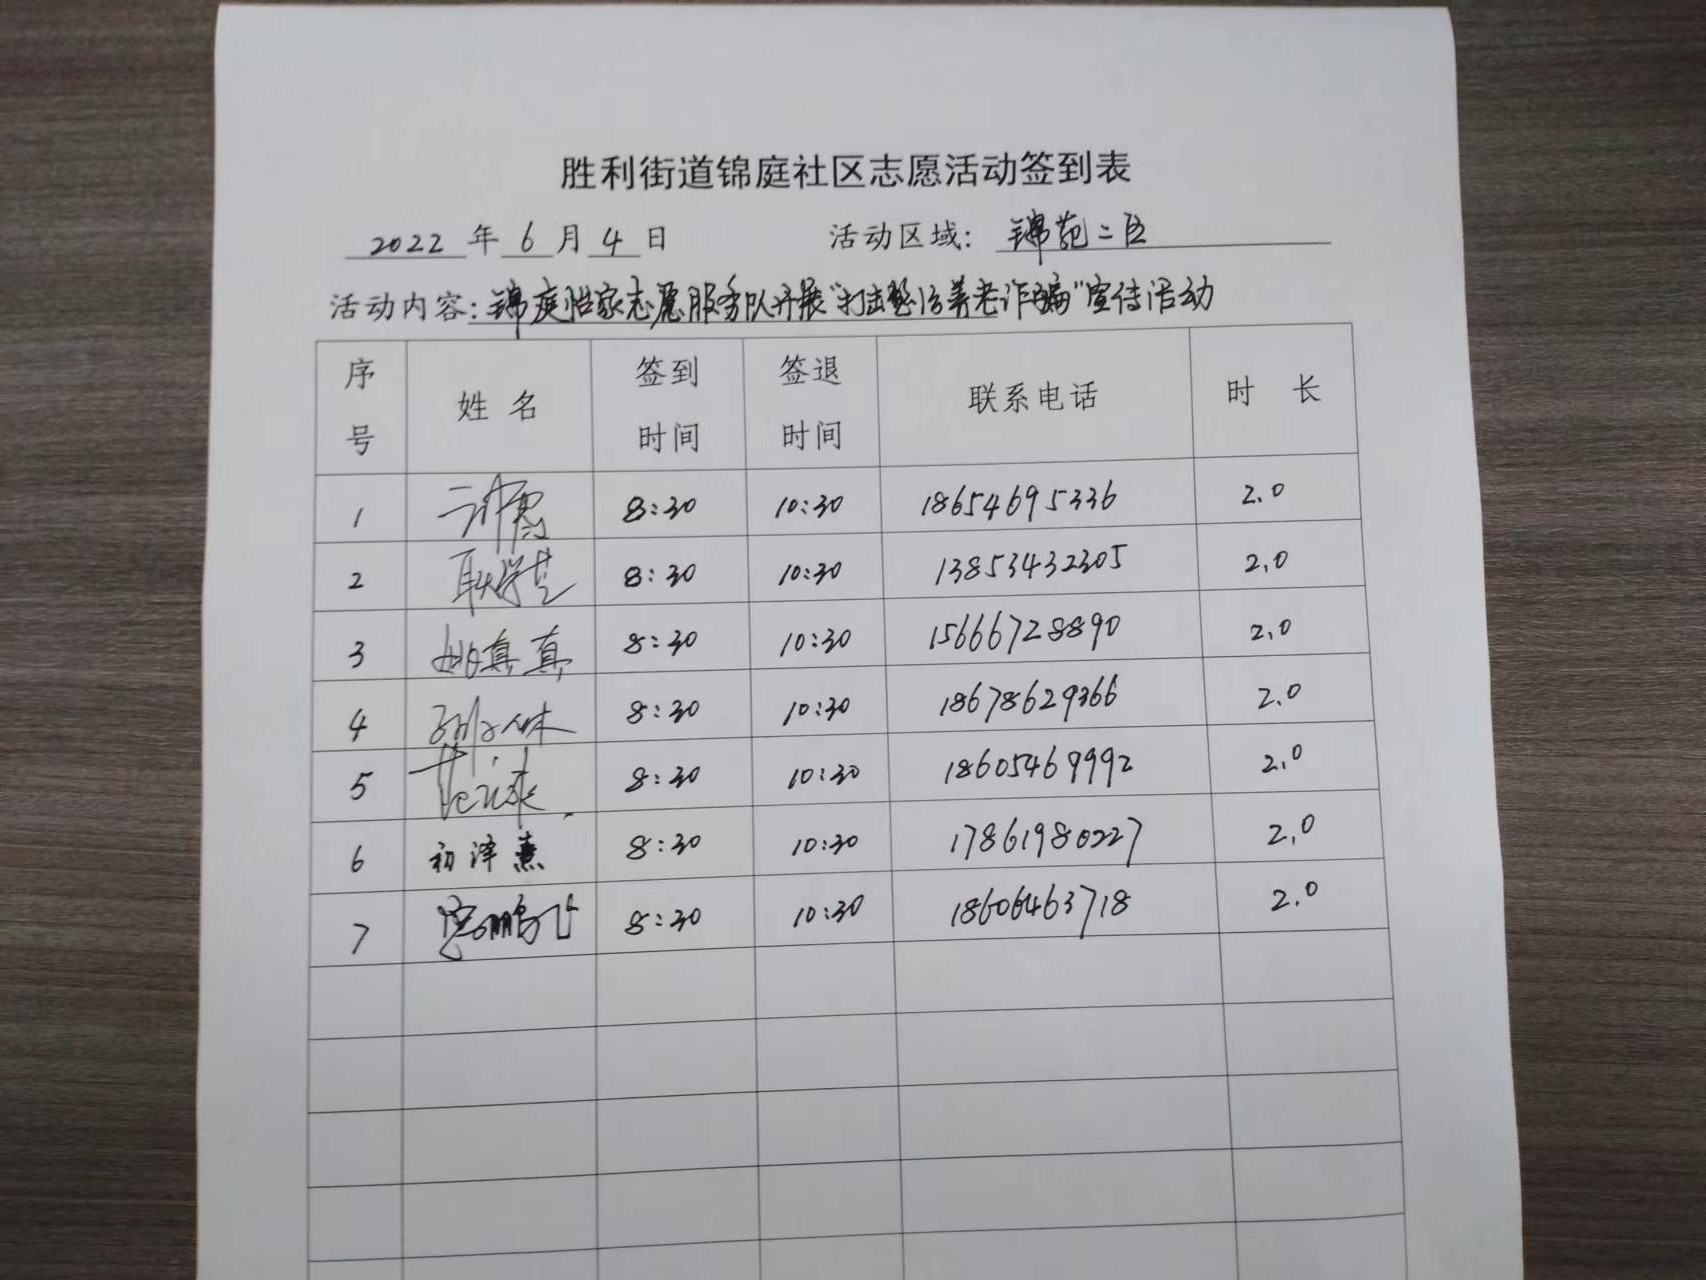 胜利街道锦庭社区志愿活动签到表
2022 年 6 月 4 日 活动区域: 锦苑二区
活动内容: 锦庭怡家志愿服务队开展"打击整治养老诈骗"宣传活动
序号 姓名 签到时间 签退时间 联系电话 时长
1 8:30 10:30 18654695336 2.0
2 8:30 10:30 13853432305 2.0
3 姚真真 8:30 10:30 15666728890 2.0
4 8:30 10:30 18678629366 2.0
5 8:30 10:30 18605469992 2.0
6 初泽熹 8:30 10:30 17861980227 2.0
7 鹏飞 8:30 10:30 18606463718 2.0